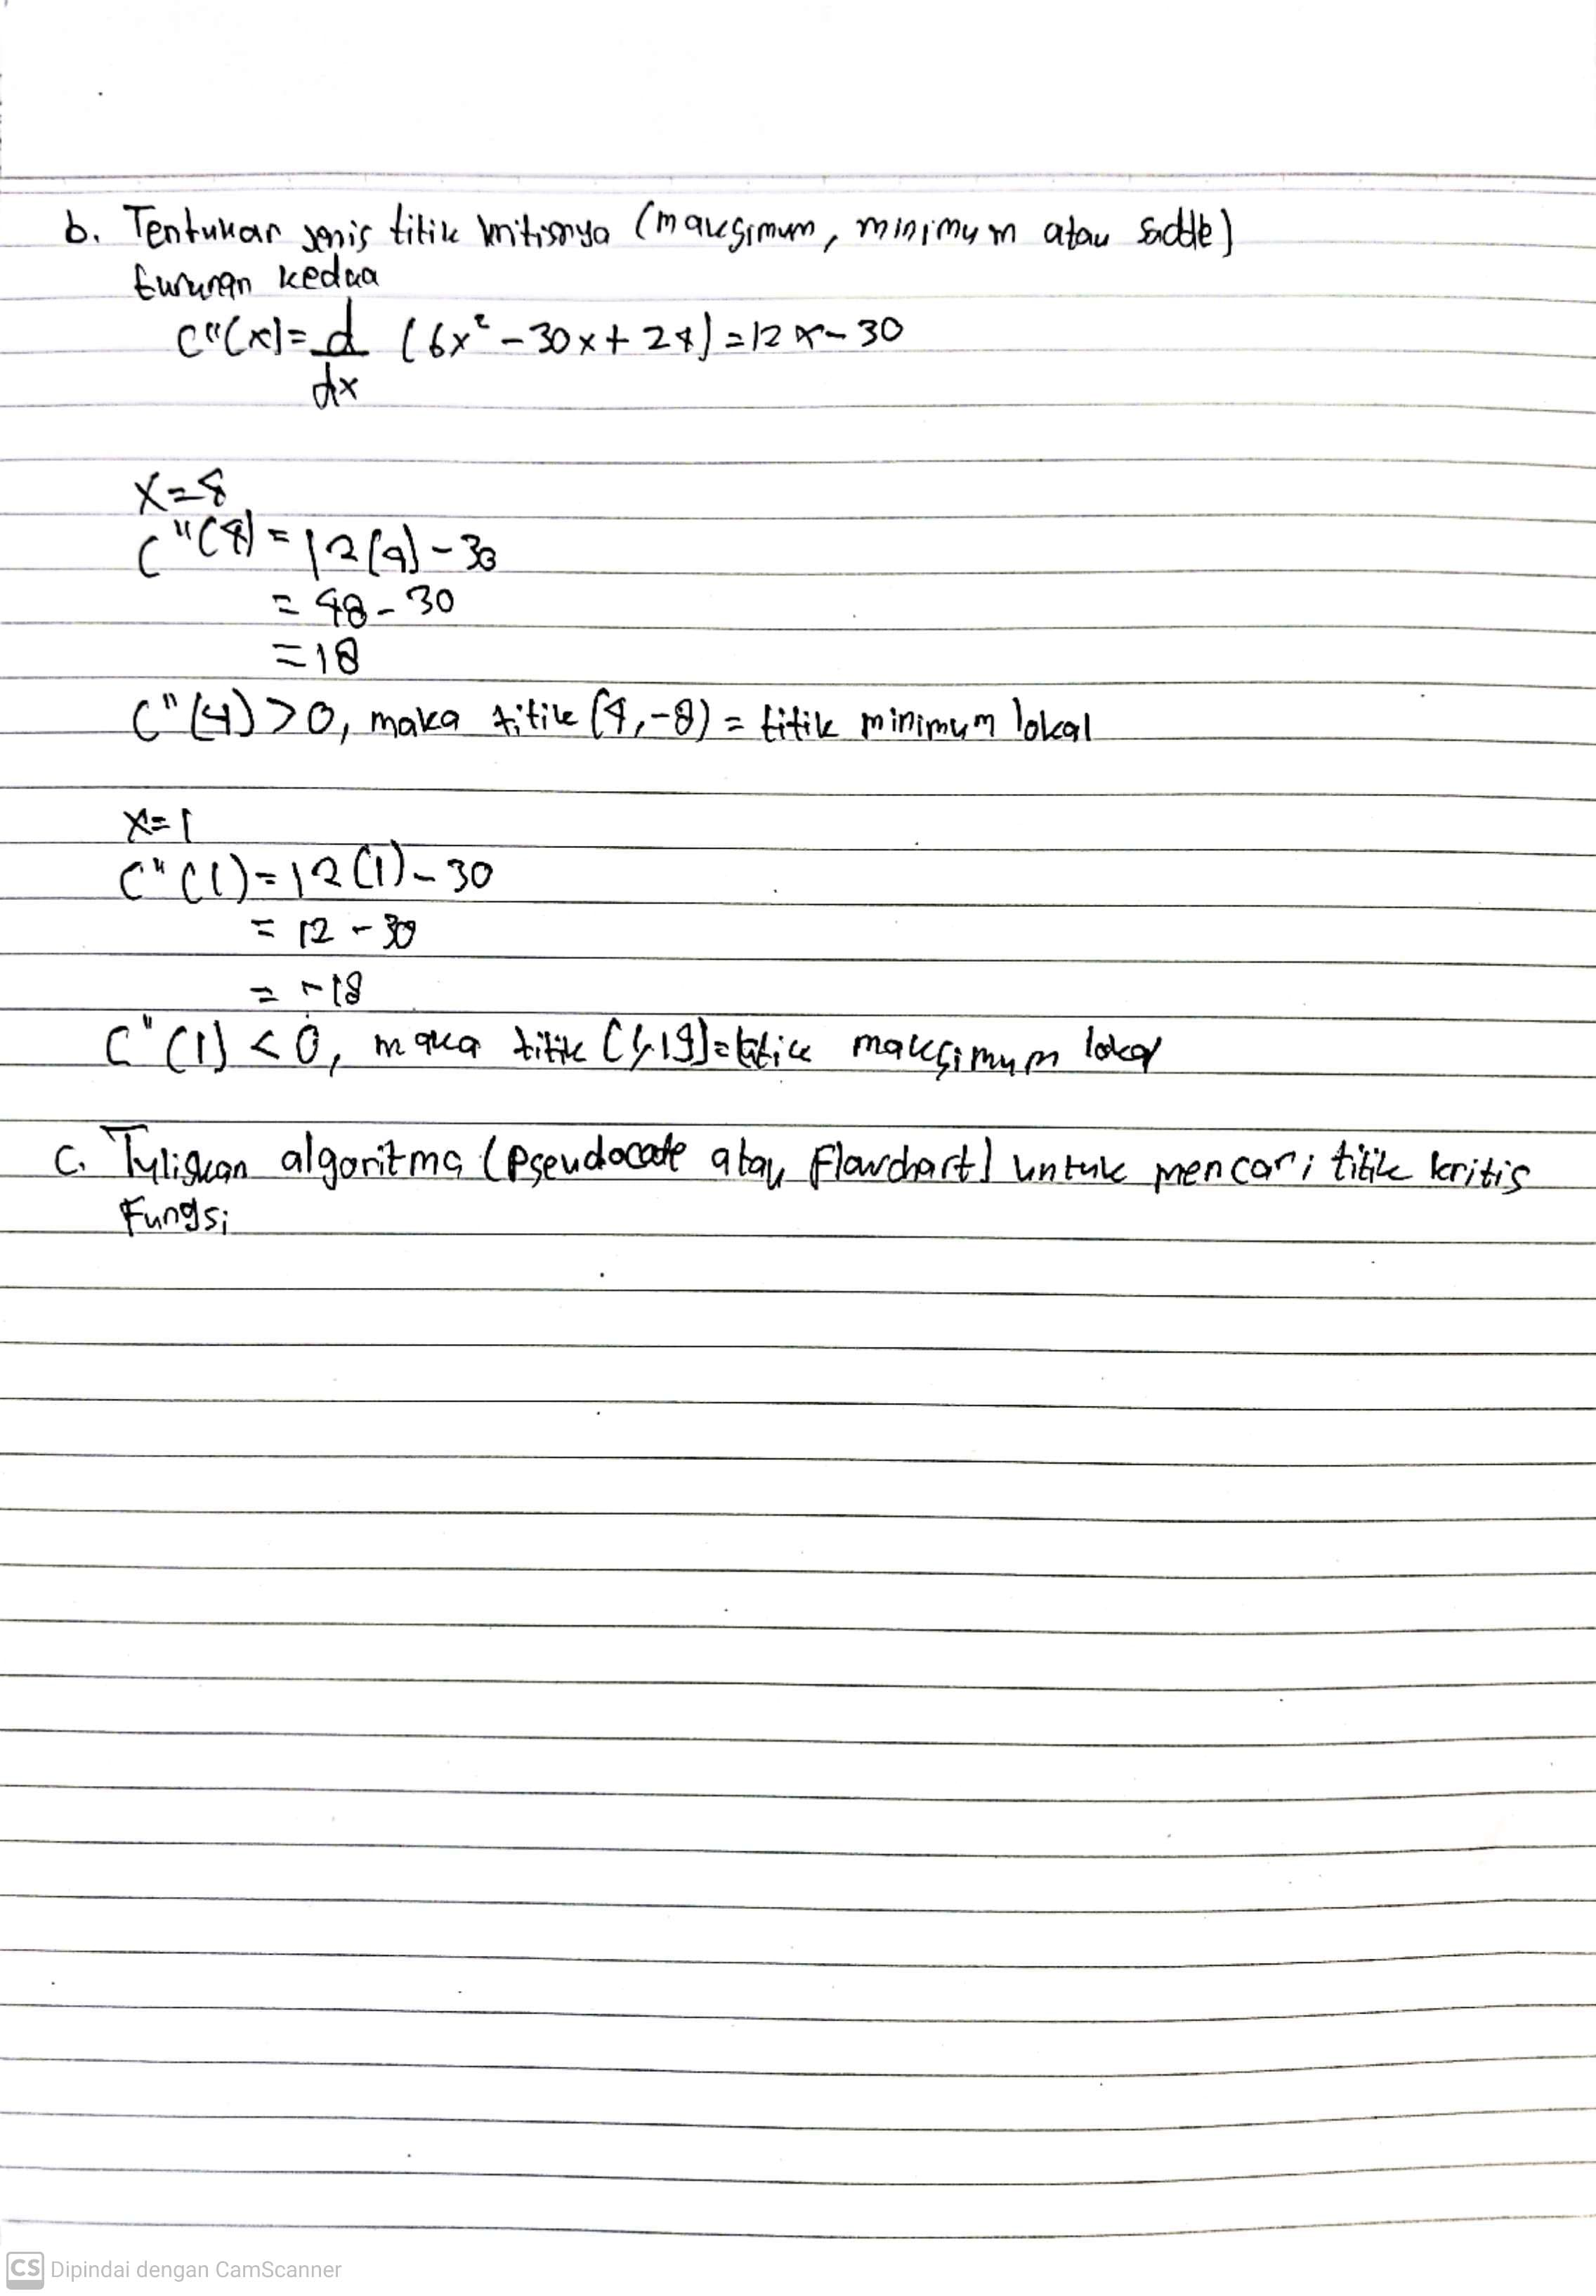 b. Tentukan jenis titik kritisnya (maksimum, minimum atau saddle)
turunan kedua
C"(x) = d/dx (6x² - 30x + 24) = 12x - 30
x = 4
C"(4) = 12(4) - 30
= 48 - 30
= 18
C"(4) > 0, maka titik (4, -8) = titik minimum lokal
x = 1
C"(1) = 12(1) - 30
= 12 - 30
= -18
C"(1) < 0, maka titik (1, 19) = titik maksimum lokal
c. Tuliskan algoritma (Pseudocode atau Flowchart) untuk mencari titik kritis
Fungsi
CS Dipindai dengan CamScanner